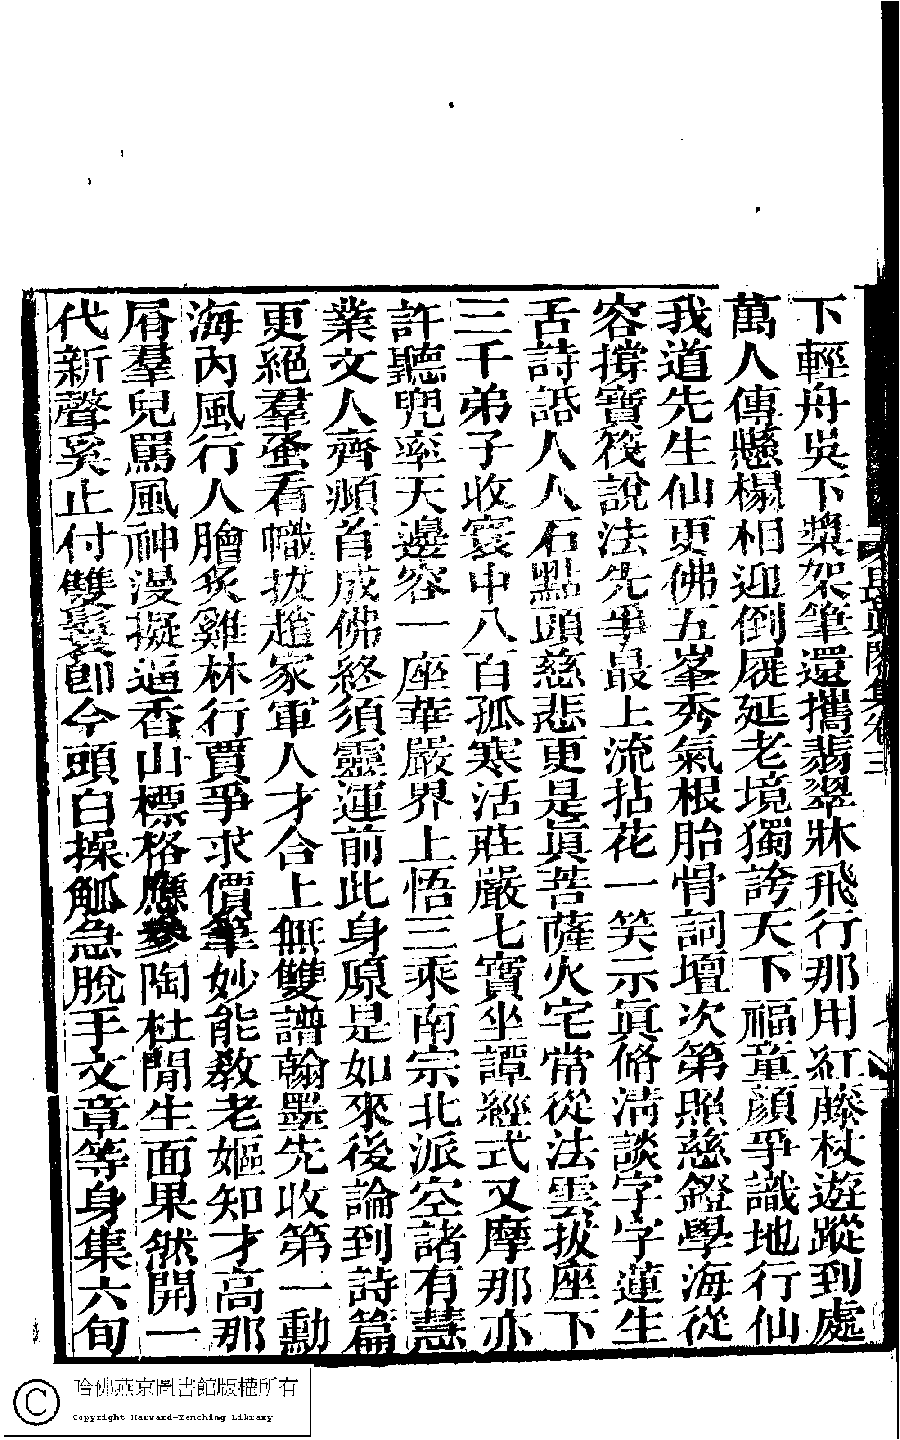 下輕舟吳下槳架筆還攜翡翠牀飛行那用紅藤杖遊蹤到處
萬人傳懸榻相迎倒屣延老境獨誇天下福童顏爭識地行仙
我道先生仙更佛五峯秀氣根胎骨詞壇次第照慈鐙學海從
容撐寶筏說法先爭最上流拈花一笑示眞脩淸談字字蓮生
舌詩話人人石點頭慈悲更是眞菩薩火宅常從法雲拔座下
三千弟子收寰中八百孤寒活莊嚴七寶坐譚經式又摩那亦
許聽兜率天邊容一座華嚴界上悟三乘南宗北派空諸有慧
業文人齊頫首成佛終須靈運前此身原是如來後論到詩篇
更絕羣蚤看幟拔趙家軍人才合上無雙譜翰墨先收第一勳
海內風行人膾炙雞林行賈爭求價筆妙能敎老嫗知才高那
屑羣兒罵風神漫擬逼香山標格應參陶杜閒生面果然開一
代新聲奚止付雙鬟卽今頭白操觚急脫手文章等身集六旬
長眞閣集卷三
哈佛燕京圖書館版權所有
Copyright Harvard-Yenching Library